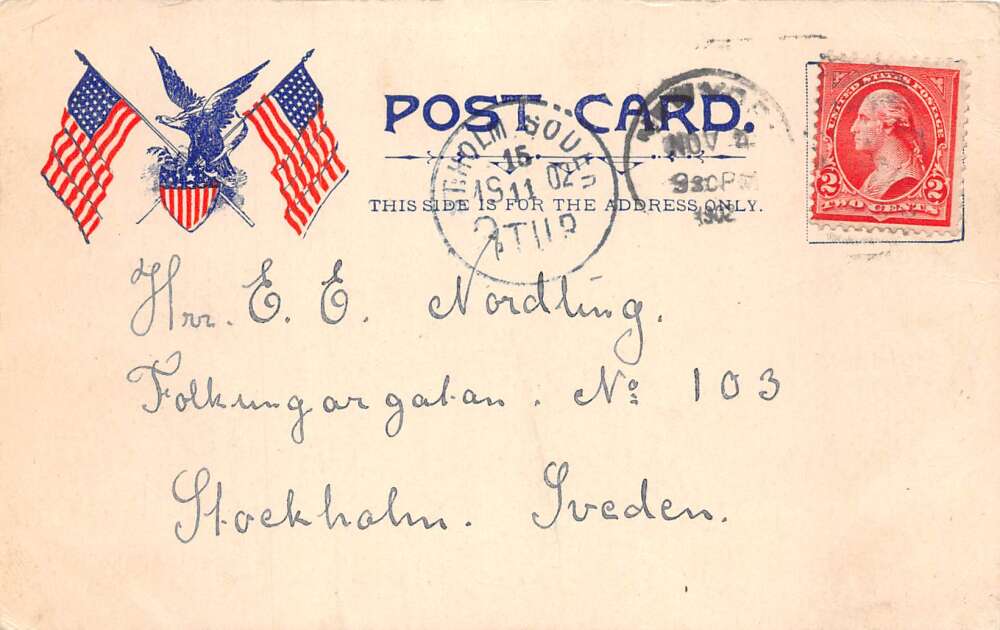 POST CARD.
THIS SIDE IS FOR THE ADDRESS ONLY.
NOV
930 PM
1902
15
11
02
2 TUR
UNITED STATES POSTAGE
2 2
TWO CENTS
Hrr. E. E. Nordling.
Folkungargatan. No: 103
Stockholm. Sveden.